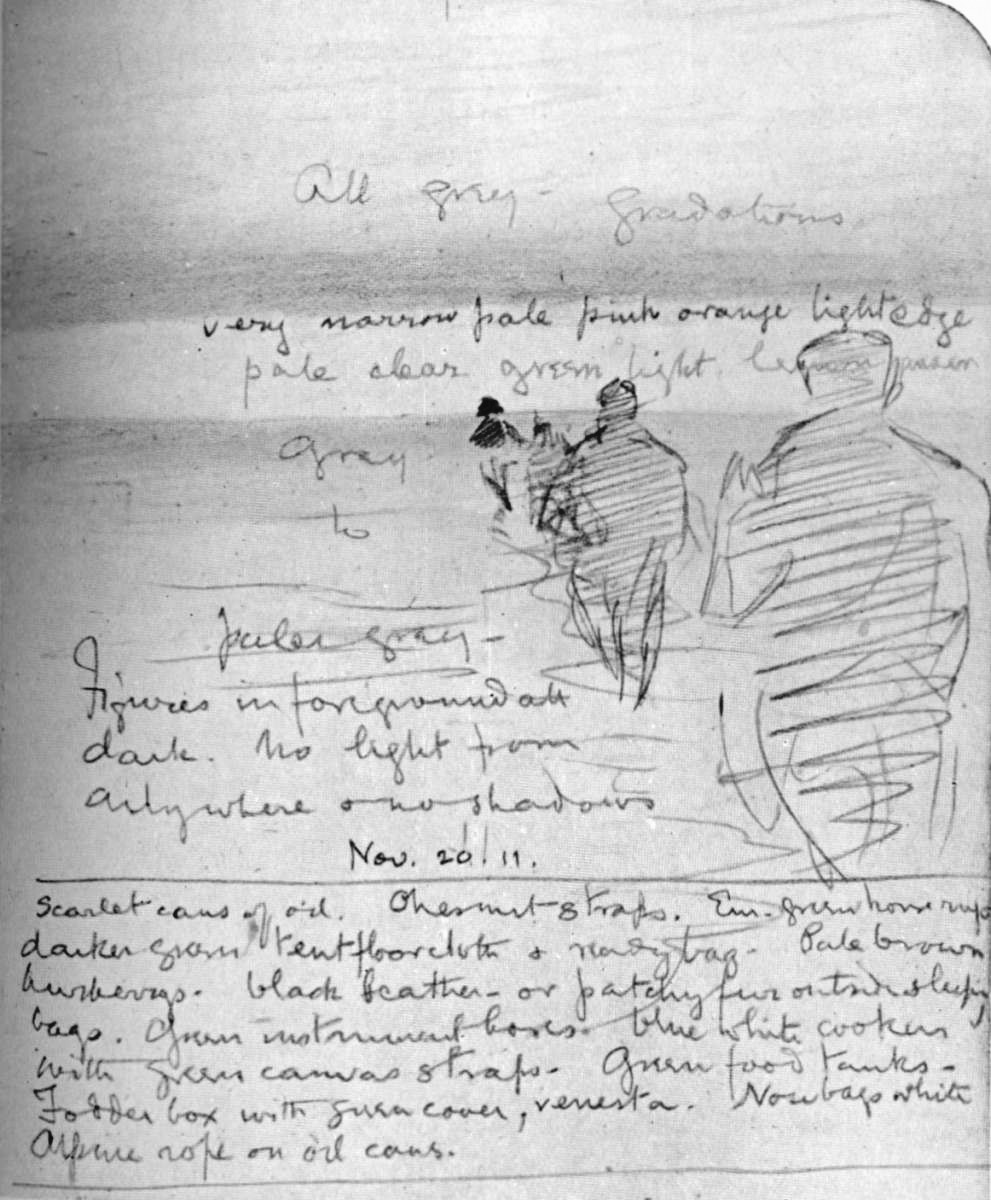 All grey - gradations
very narrow pale pink orange light edge
pale clear green light. lemon
Grey
to
paler grey -
Figures in foreground all
dark. No light from
anywhere & no shadows
Nov. 20. 11.
Scarlet cans of oil. Chesnut straps. Em. green horse rugs
darker green tent floorcloth & ready bag. Pale brown
burberrys. black leather - or patchy fur outside sleeping
bags. Green instrument boxes. blue white cookers
with green canvas straps. Green food tanks -
Fodder box with green cover, venesta. Nosebags white
Alpine rope on oil cans.